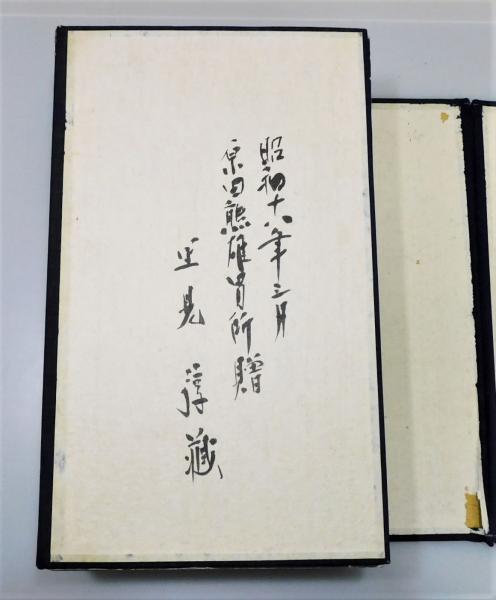 昭和十八年三月
原田熊雄男所贈
里見 弴 藏